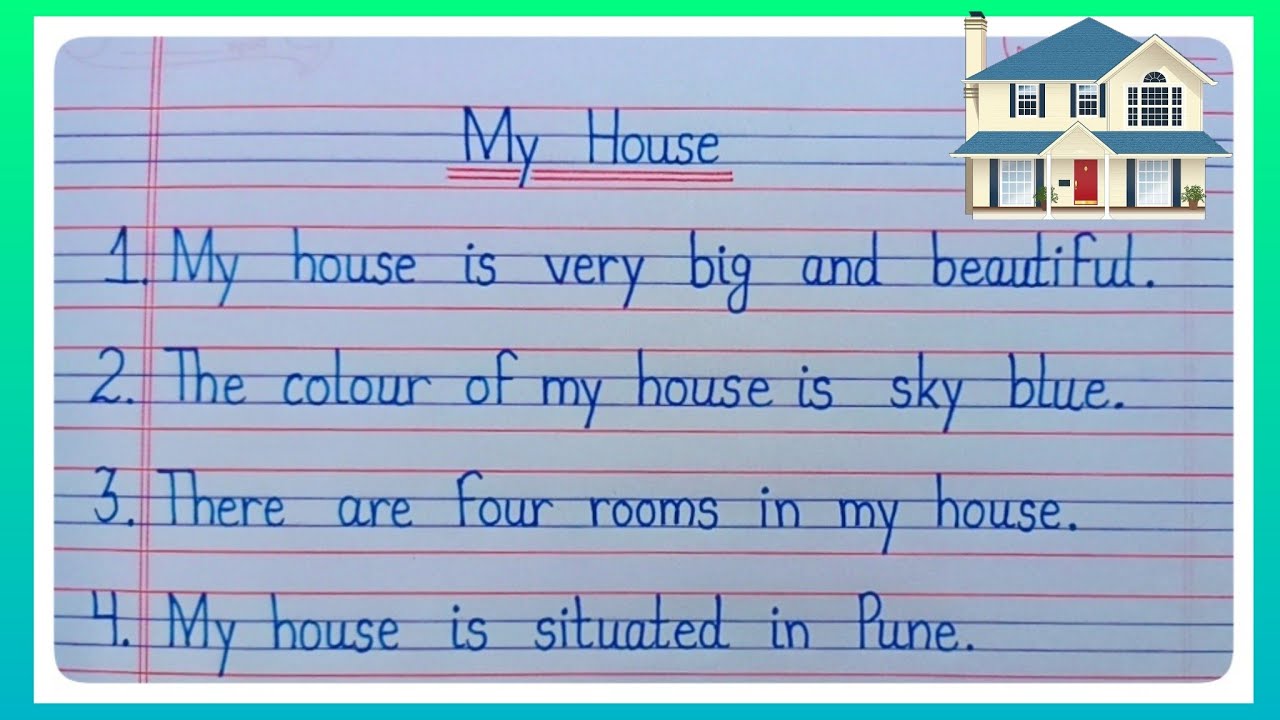 My House
1. My house is very big and beautiful.
2. The colour of my house is sky blue.
3. There are four rooms in my house.
4. My house is situated in Pune.